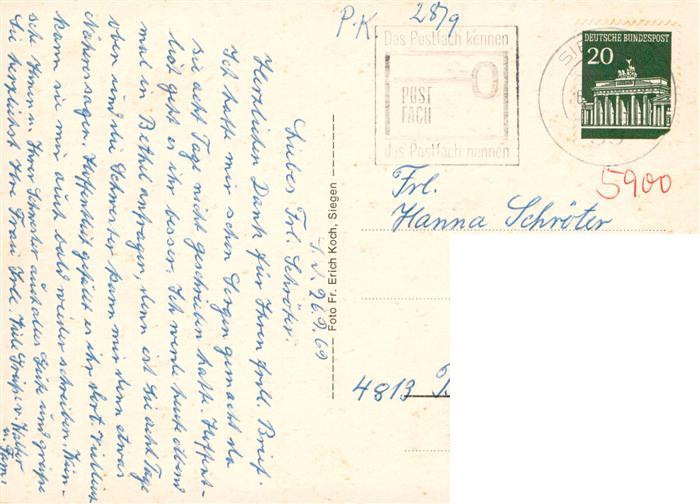 P.K. 28/9
Das Postfach kennen
POST
FACH
das Postfach nennen
DEUTSCHE BUNDESPOST
20
SIE
59
5900
Frl.
Hanna Schröter
4813
Foto Fr. Erich Koch, Siegen
S. d. 26.9.69
Liebes Frl. Schröter.
Herzlichen Dank für Ihren frdl. Brief.
Ich hatte mir schon Sorgen gemacht da
sie acht Tage nicht geschrieben hatte. Hoffent-
lich geht es ihr besser. Ich werde heute abend
mal in Bethel anfragen, denn ist Sie acht Tage
oben und die Schwester kann mir dann etwas
Näheres sagen. Hoffentlich gefällt es ihr dort. Vielleicht
kann sie mir auch bald wieder schreiben. Wün-
sche Ihnen u. Ihrer Schwester auch alles Gute und grüße
Sie herzlichst Ihre Frau Viele Grüße v. Walter
u. Fam.